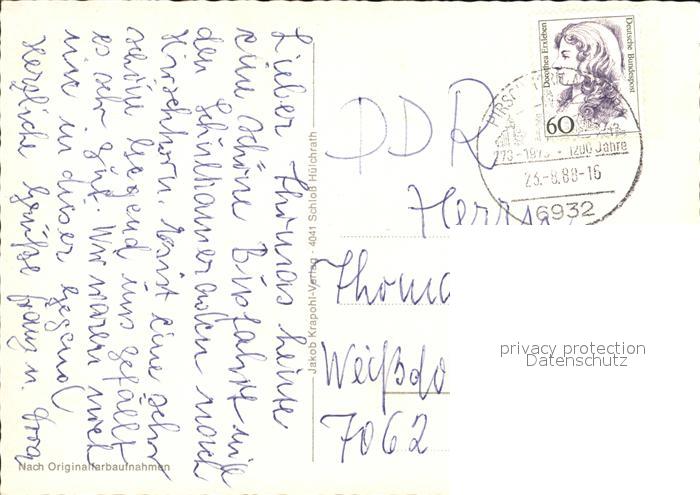 Lieber Thomas heute
eine schöne Busfahrt mit
den Schulkameraden nach
Hirschhorn. Es ist eine sehr
schöne Gegend uns gefällt
es sehr gut. Wir waren noch
nie in dieser Gegend
Herzliche Grüße Franz u.
Nach Originalfarbaufnahmen
Jakob Krapohl-Verlag · 4041 Schloß Hülchrath
Dorothea Erxleben
Deutsche Bundespost
60
HIRSCHHORN
773-1973 · 1200 Jahre
23.-8.88-16
6932
DDR
Herrn
Thoma
Weißdo
7062
privacy protection
Datenschutz